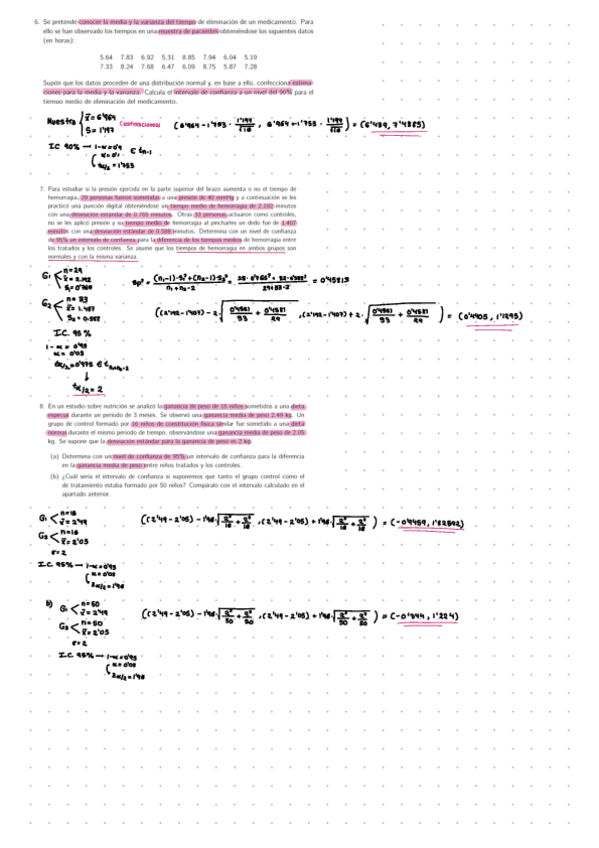 6. Se pretende conocer la media y la varianza del tiempo de eliminación de un medicamento. Para
ello se han observado los tiempos en una muestra de pacientes obteniéndose los siguientes datos
(en horas):
5.64 7.83 6.92 5.31 8.85 7.94 6.04 5.19
7.33 8.24 7.68 6.47 6.09 8.75 5.87 7.28
Supón que los datos proceden de una distribución normal y, en base a ello, confecciona estima-
ciones para la media y la varianza. Calcula el intervalo de confianza a un nivel del 90% para el
tiempo medio de eliminación del medicamento.
Muestra { x̄ = 6'964
S = 1'197
(estimaciones)
(6'964 - 1'753 · 1'197/√16 , 6'964 + 1'753 · 1'197/√16) = (6'439, 7'4885)
IC 90% → 1-α=0'9 ∈ tn-1
α=0'1
tα/2 = 1'753
7. Para estudiar si la presión ejercida en la parte superior del brazo aumenta o no el tiempo de
hemorragia, 29 personas fueron sometidas a una presión de 40 mmHg y a continuación se les
practicó una punción digital obteniéndose un tiempo medio de hemorragia de 2.192 minutos
con una desviación estándar de 0.765 minutos. Otras 33 personas actuaron como controles,
no se les aplicó presión y su tiempo medio de hemorragia al pincharles un dedo fue de 1.407
minutos con una desviación estándar de 0.588 minutos. Determina con un nivel de confianza
de 95% un intervalo de confianza para la diferencia de los tiempos medios de hemorragia entre
los tratados y los controles. Se asume que los tiempos de hemorragia en ambos grupos son
normales y con la misma varianza.
G1 < n = 29
x̄ = 2.192
Sp² = (n1-1)·S1²+(n2-1)·S2² / n1+n2-2 = 28·0'765²+32·0'588² / 29+33-2 = 0'45813
G2 < n = 33
x̄ = 1.407
S2 = 0.588
((2'192 - 1'407) - 2·√ 33 + 29 , (2'192 - 1'407) + 2·√ 33 + 29 ) = (0'4405, 1'1295)
I.C. 95%
1-α = 0'95
α = 0'05
tα/2 = 2
8. En un estudio sobre nutrición se analizó la ganancia de peso de 16 niños sometidos a una dieta
especial durante un periodo de 3 meses. Se observó una ganancia media de peso 2.49 kg. Un
grupo de control formado por 16 niños de constitución física similar fue sometido a una dieta
normal durante el mismo periodo de tiempo, observándose una ganancia media de peso de 2.05
kg. Se supone que la desviación estándar para la ganancia de peso es 2 kg.
(a) Determina con un nivel de confianza de 95% un intervalo de confianza para la diferencia
en la ganancia media de peso entre niños tratados y los controles.
(b) ¿Cuál sería el intervalo de confianza si suponemos que tanto el grupo control como el
de tratamiento estaba formado por 50 niños? Compáralo con el intervalo calculado en el
apartado anterior.
G1 < n = 16
x̄ = 2'49
G2 < n = 16
x̄ = 2'05
σ = 2
((2'49 - 2'05) - 1'96·√2²/16 + 2²/16 , (2'49 - 2'05) + 1'96·√2²/16 + 2²/16) = (-0'9459, 1'82592)
I.C 95% → 1-α=0'95
α = 0'05
zα/2 = 1'96
b) G1 < n = 50
x̄ = 2'49
G2 < n = 50
x̄ = 2'05
σ = 2
((2'49 - 2'05) - 1'96·√2²/50 + 2²/50 , (2'49 - 2'05) + 1'96·√2²/50 + 2²/50) = (-0'344, 1'224)
I.C 95% → 1-α=0'95
α = 0'05
zα/2 = 1'96